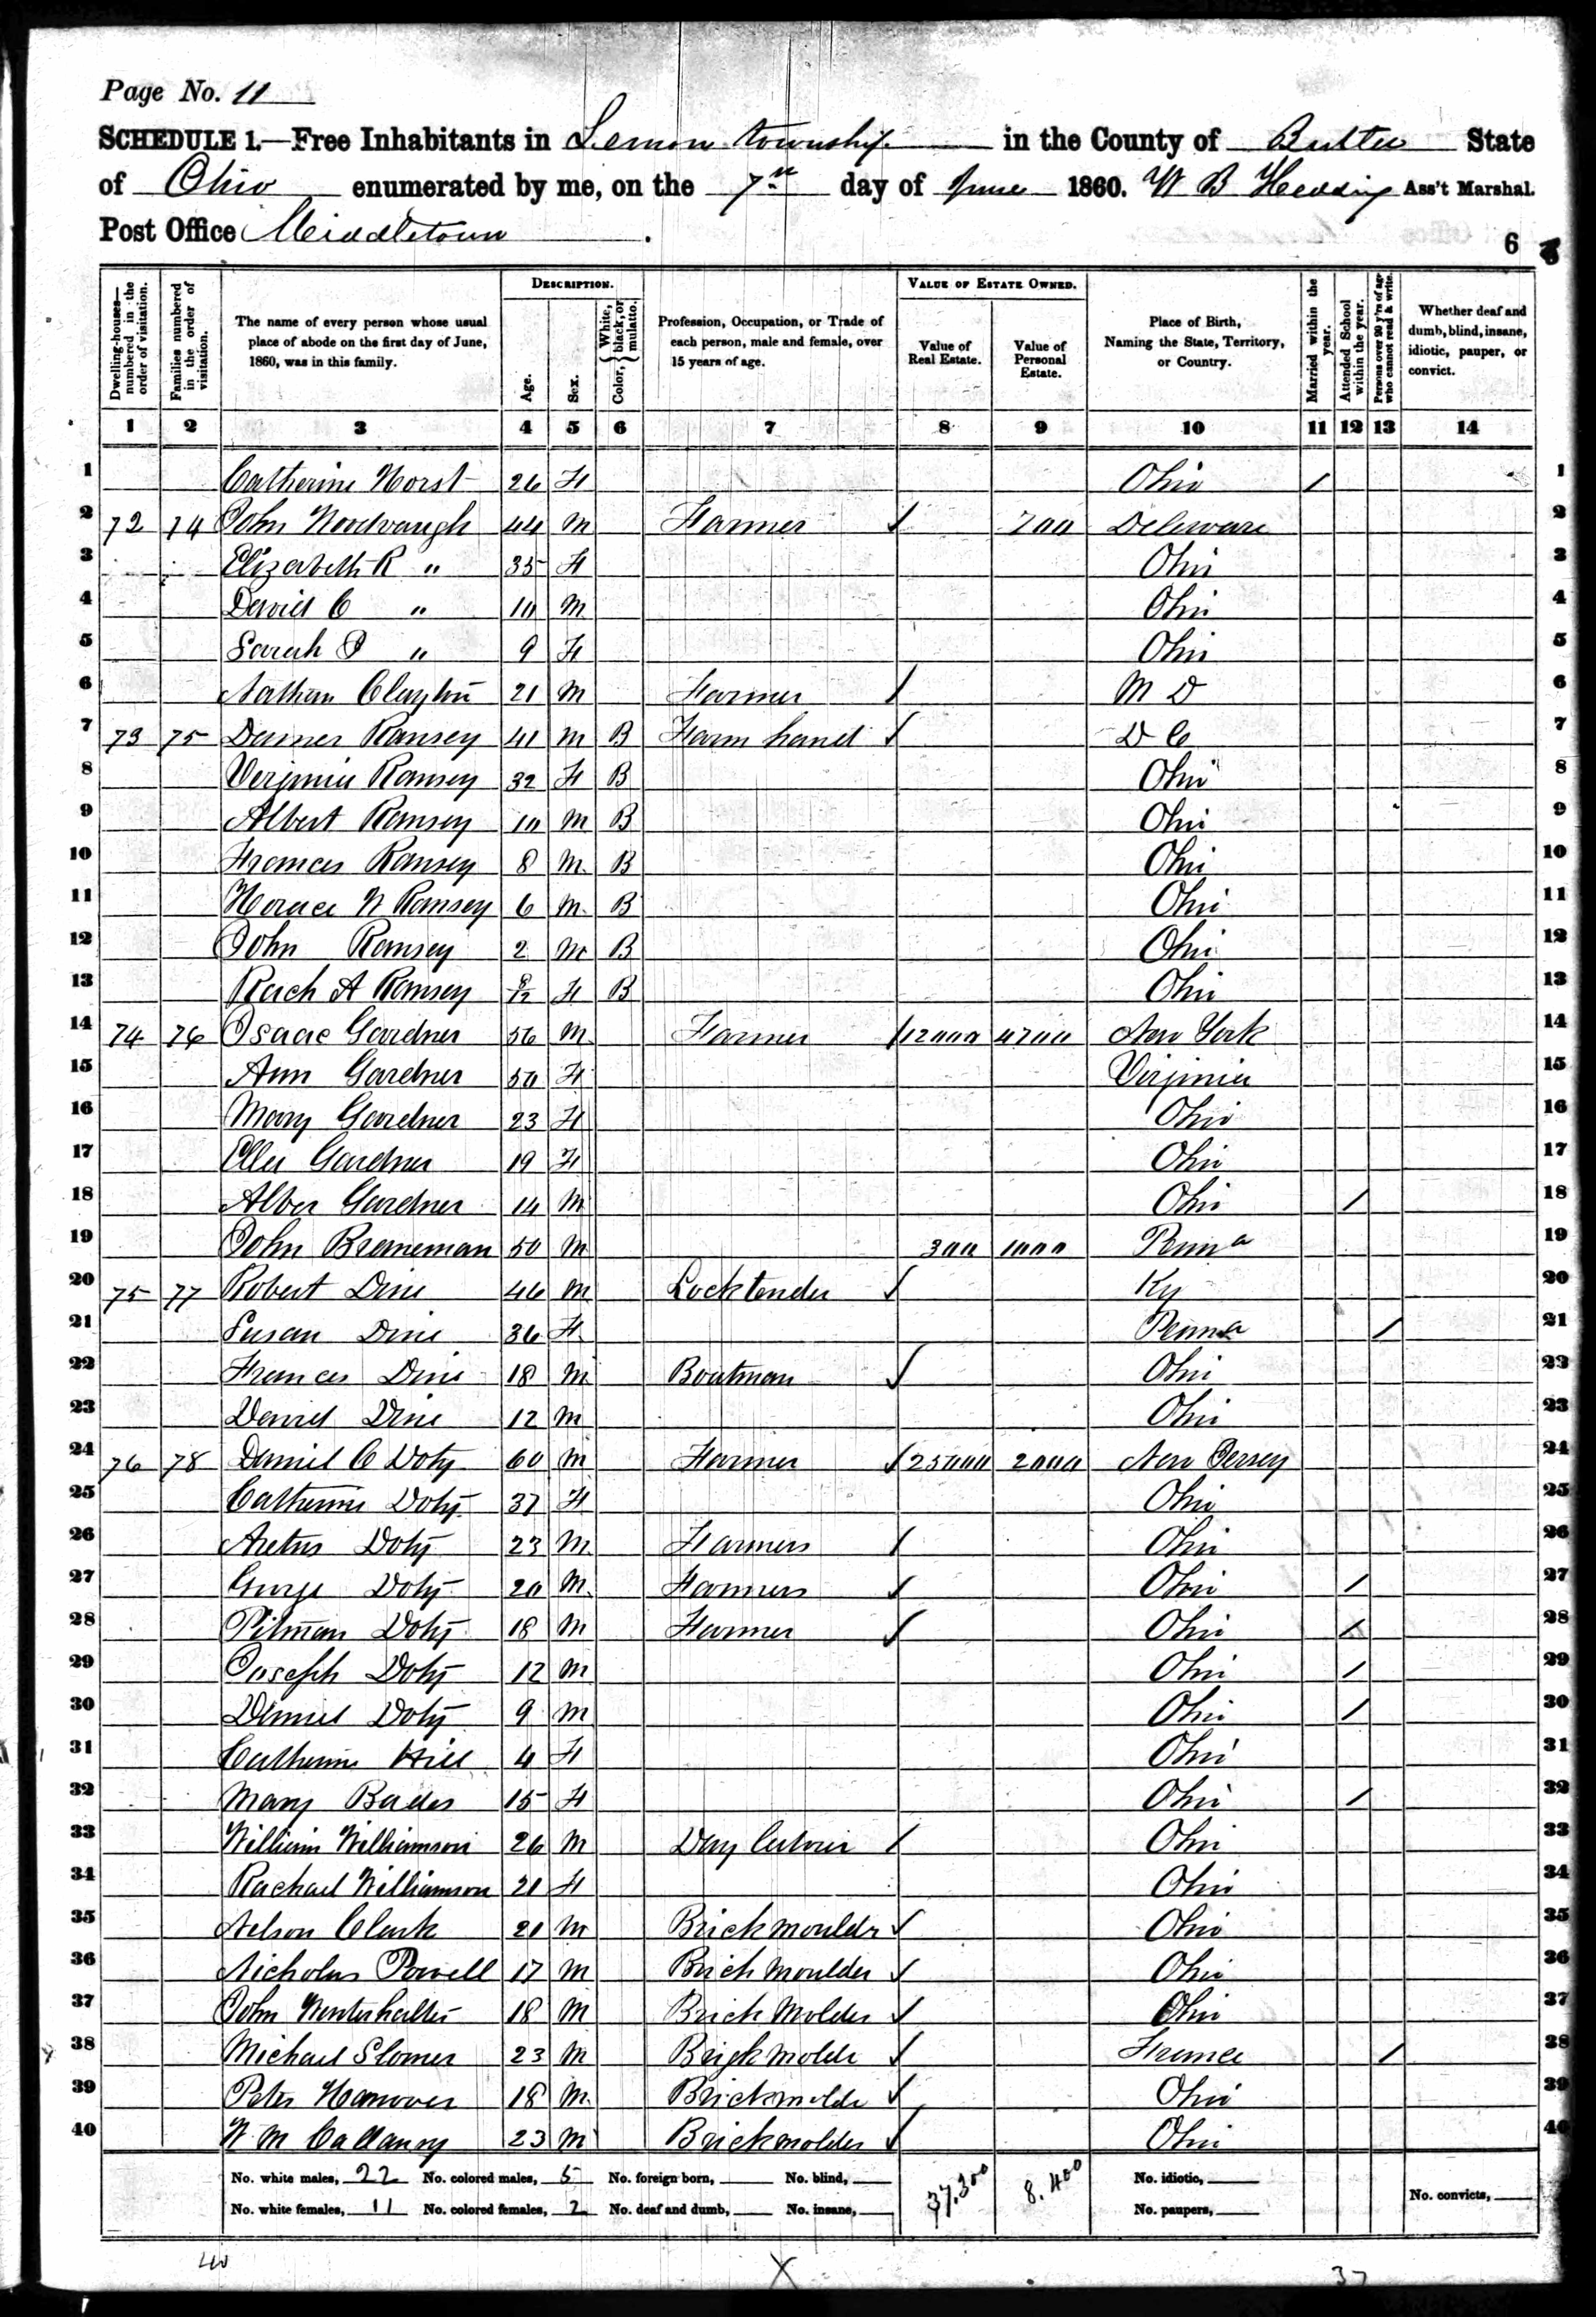 Page No. 11
SCHEDULE 1.—Free Inhabitants in Lemon township in the County of Butler State
of Ohio enumerated by me, on the 7th day of June 1860. W B Ass't Marshal.
Post Office Middletown . 6
Dwelling-houses—numbered in the order of visitation. Families numbered in the order of visitation. The name of every person whose usual place of abode on the first day of June, 1860, was in this family. DESCRIPTION. Age. Sex. Color, {White, black, or mulatto. Profession, Occupation, or Trade of each person, male and female, over 15 years of age. VALUE OF ESTATE OWNED. Value of Real Estate. Value of Personal Estate. Place of Birth, Naming the State, Territory, or Country. Married within the year. Attended School within the year. Persons over 20 y'rs of age who cannot read & write. Whether deaf and dumb, blind, insane, idiotic, pauper, or convict.
1 2 3 4 5 6 7 8 9 10 11 12 13 14
1 Catherine Horst 26 F Ohio / 1
2 72 74 John Woodvaugh 44 M Farmer 700 Deleware 2
3 Elizabeth R " 35 F Ohio 3
4 David C " 10 M Ohio 4
5 Sarah P " 9 F Ohio 5
6 Nathan Clayton 21 M Farmer / M D 6
7 73 75 Ramsey 41 M B Farm hand D C 7
8 Verjinia Ramsey 32 F B Ohio 8
9 Albert Ramsey 10 M B Ohio 9
10 Frances Ramsey 8 M B Ohio 10
11 Horace W Ramsey 6 M B Ohio 11
12 John Ramsey 2 M B Ohio 12
13 Rach A Ramsey 8/12 F B Ohio 13
14 74 76 Isaac Gardner 56 M Farmer / 12000 4700 New York 14
15 Ann Gardner 50 F Virjinia 15
16 Mary Gardner 23 F Ohio 16
17 Ella Gardner 19 F Ohio 17
18 Alber Gardner 14 M Ohio / 18
19 John Breneman 50 M 300 1000 Penna 19
20 75 77 Robert Dine 46 M Locktender Ky 20
21 Susan Dine 36 F Penna / 21
22 Frances Dine 18 M Boatman Ohio 22
23 David Dine 12 M Ohio 23
24 76 78 Daniel C Doty 60 M Farmer 25000 2000 New Jersey 24
25 Catherine Doty 37 F Ohio 25
26 Doty 23 M Farmers / Ohio 26
27 George Doty 20 M Farmers Ohio / 27
28 Pitman Doty 18 M Farmer Ohio / 28
29 Joseph Doty 12 M Ohio / 29
30 Daniel Doty 9 M Ohio / 30
31 Catherine Hill 4 F Ohio 31
32 Mary 15 F Ohio / 32
33 William Williamson 26 M Day / Ohio 33
34 Rachael Williamson 21 F Ohio 34
35 Nelson Clark 21 M Brick mouldr Ohio 35
36 Nicholas Powell 17 M Brick moulder Ohio 36
37 John Wenterhalter 18 M Brick Molder Ohio 37
38 Michael Slomer 23 M Brick molde France / 38
39 Peter Hanover 18 M Brickmolde Ohio 39
40 W M Callaway 23 M Brickmolder Ohio 40
No. white males, 22 No. colored males, 5 No. foreign born, No. blind, 37,300 8.400 No. idiotic,
No. white females, 11 No. colored females, 2 No. deaf and dumb, No. insane, No. paupers, No. convicts,
40 X 37